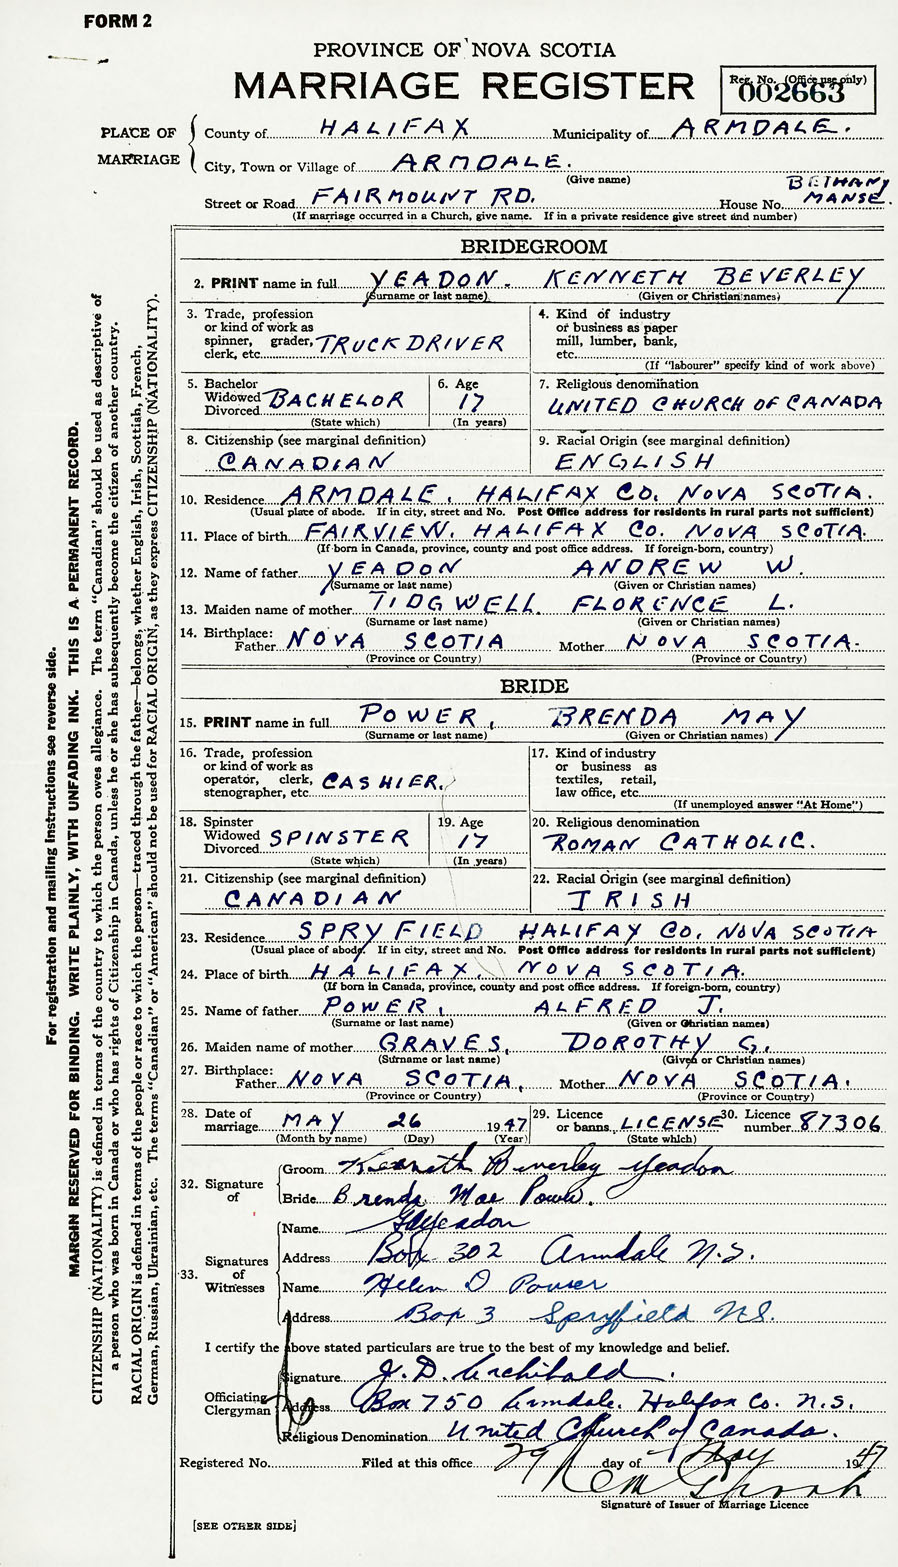 FORM 2
PROVINCE OF NOVA SCOTIA
MARRIAGE REGISTER
Reg. No. (Office use only)
002663
PLACE OF MARRIAGE
County of HALIFAX Municipality of ARMDALE.
City, Town or Village of ARMDALE.
(Give name)
Street or Road FAIRMOUNT RD. House No. BETHANY MANSE.
(If marriage occurred in a Church, give name. If in a private residence give street and number)
BRIDEGROOM
2. PRINT name in full YEADON. KENNETH BEVERLEY
(Surname or last name) (Given or Christian names)
3. Trade, profession or kind of work as spinner, grader, clerk, etc. TRUCK DRIVER
4. Kind of industry or business as paper mill, lumber, bank, etc.
(If "labourer" specify kind of work above)
5. Bachelor Widowed Divorced BACHELOR
(State which)
6. Age 17
(In years)
7. Religious denomination
UNITED CHURCH OF CANADA
8. Citizenship (see marginal definition)
CANADIAN
9. Racial Origin (see marginal definition)
ENGLISH
10. Residence ARMDALE, HALIFAX CO. NOVA SCOTIA.
(Usual place of abode. If in city, street and No. Post Office address for residents in rural parts not sufficient)
11. Place of birth FAIRVIEW. HALIFAX CO. NOVA SCOTIA.
(If born in Canada, province, county and post office address. If foreign-born, country)
12. Name of father YEADON ANDREW W.
(Surname or last name) (Given or Christian names)
13. Maiden name of mother TIDGWELL FLORENCE L.
(Surname or last name) (Given or Christian names)
14. Birthplace:
Father NOVA SCOTIA Mother NOVA SCOTIA.
(Province or Country) (Province or Country)
BRIDE
15. PRINT name in full POWER, BRENDA MAY
(Surname or last name) (Given or Christian names)
16. Trade, profession or kind of work as operator, clerk, stenographer, etc. CASHIER.
17. Kind of industry or business as textiles, retail, law office, etc.
(If unemployed answer "At Home")
18. Spinster Widowed Divorced SPINSTER
(State which)
19. Age 17
(In years)
20. Religious denomination
ROMAN CATHOLIC.
21. Citizenship (see marginal definition)
CANADIAN
22. Racial Origin (see marginal definition)
IRISH
23. Residence SPRYFIELD HALIFAX CO. NOVA SCOTIA
(Usual place of abode. If in city, street and No. Post Office address for residents in rural parts not sufficient)
24. Place of birth HALIFAX, NOVA SCOTIA.
(If born in Canada, province, county and post office address. If foreign-born, country)
25. Name of father POWER, ALFRED J.
(Surname or last name) (Given or Christian names)
26. Maiden name of mother GRAVES, DOROTHY G.
(Surname or last name) (Given or Christian names)
27. Birthplace:
Father NOVA SCOTIA, Mother NOVA SCOTIA.
(Province or Country) (Province or Country)
28. Date of marriage MAY 26 1947
(Month by name) (Day) (Year)
29. Licence or banns LICENSE
(State which)
30. Licence number 87306
32. Signature of
Groom Kenneth Beverley Yeadon
Bride Brenda Mae Power.
33. Signatures of Witnesses
Name Yeadon
Address Box 302 Armdale N.S.
Name Helen D Power
Address Box 3 Spryfield NS.
I certify the above stated particulars are true to the best of my knowledge and belief.
Officiating Clergyman
Signature J. D. Archibald.
Address Box 750 Armdale. Halifax Co. N.S.
Religious Denomination United Church of Canada.
Registered No. Filed at this office 29 day of May 1947
Signature of Issuer of Marriage Licence
[SEE OTHER SIDE]
For registration and mailing instructions see reverse side.
MARGIN RESERVED FOR BINDING. WRITE PLAINLY, WITH UNFADING INK. THIS IS A PERMANENT RECORD.
CITIZENSHIP (NATIONALITY) is defined in terms of the country to which the person owes allegiance. The term "Canadian" should be used as descriptive of
a person who was born in Canada or who has rights of Citizenship in Canada, unless he or she has subsequently become the citizen of another country.
RACIAL ORIGIN is defined in terms of the people or race to which the person—traced through the father—belongs, whether English, Irish, Scottish, French,
German, Russian, Ukrainian, etc. The terms "Canadian" or "American" should not be used for RACIAL ORIGIN, as they express CITIZENSHIP (NATIONALITY).